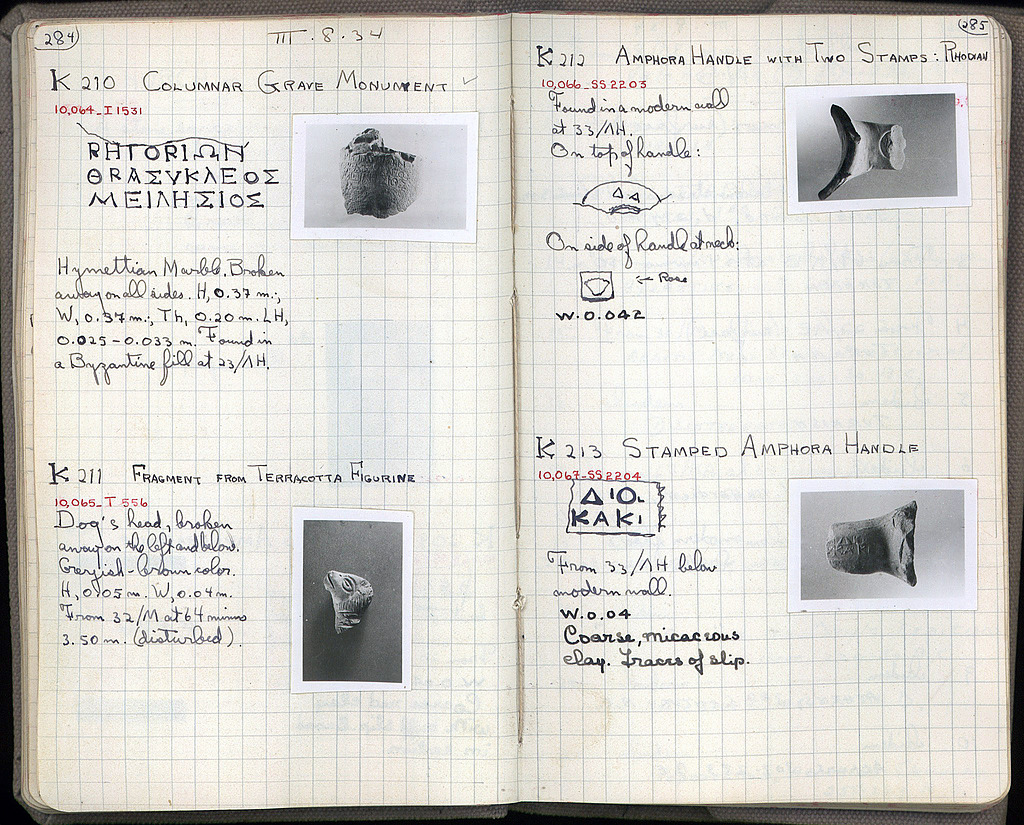 284
III.8.34
K 210 COLUMNAR GRAVE MONUMENT ✓
10,064_I 1531
ΡΗΤΟΡΙΩΝ
ΘΡΑΣΥΚΛΕΟΣ
ΜΕΙΛΗΣΙΟΣ
Hymettian Marble. Broken
away on all sides. H, 0.37 m.;
W, 0.37 m.; Th, 0.20 m. LH,
0.025-0.033 m. Found in
a Byzantine fill at 23/ΛΗ.
K 211 FRAGMENT FROM TERRACOTTA FIGURINE
10,065_T 556
Dog's head, broken
away on the left and below.
Greyish-brown color.
H, 0.05 m. W, 0.04 m.
From 32/M at 64 minus
3.50 m. (disturbed).
285
K 212 AMPHORA HANDLE WITH TWO STAMPS: RHODIAN
10,066_SS 2203
Found in a modern wall
at 33/ΛΗ.
On top of handle:
Δ Δ
On side of handle at neck:
← Rose
W. 0.042
K 213 STAMPED AMPHORA HANDLE
10,067_SS 2204
ΔΙΟ
ΚΑΚΙ
From 33/ΛΗ below
modern wall.
W. 0.04
Coarse, micaceous
clay. Traces of slip.